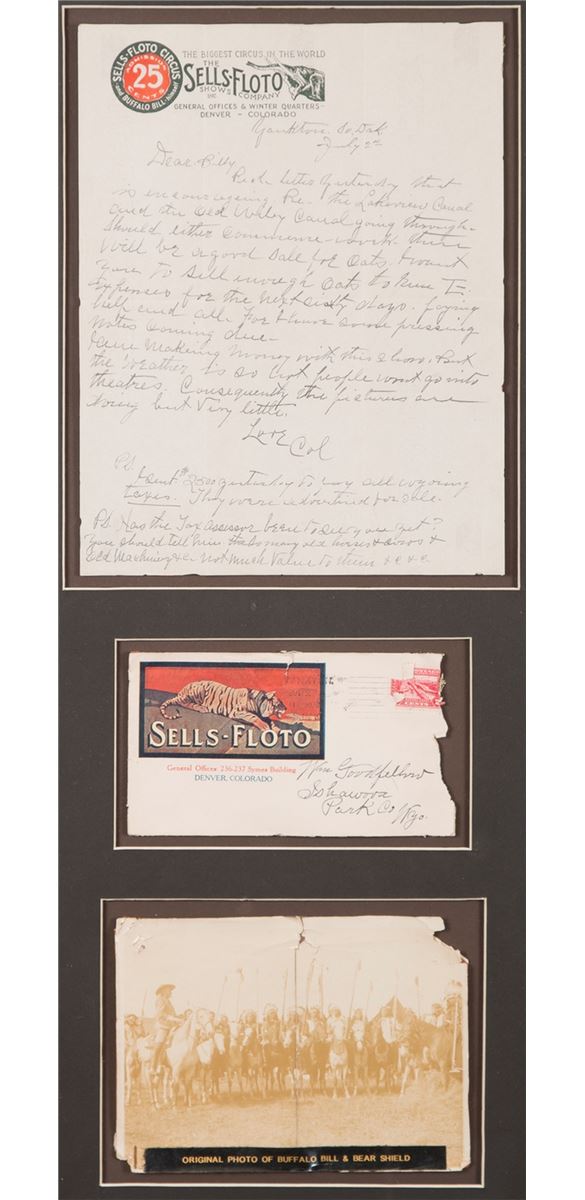 SELLS-FLOTO CIRCUS
ADMISSION
25
CENTS
and BUFFALO BILL-himself
THE BIGGEST CIRCUS IN THE WORLD
THE
SELLS-FLOTO
SHOWS COMPANY
INC.
GENERAL OFFICES & WINTER QUARTERS-
DENVER - COLORADO
Yankton, So, Dak
July 2nd
Dear Billy
Recd. letter yesterday that
is encouraging Re- the Lakeview Canal
and the Old Wiley Canal going through-
Should either commence-work- there
Will be a good sale for oats. I want
you to sell enough oats to run
Expenses for the next sixty days. paying
bill and all- For I have some pressing
notes coming due-
I am Making Money with this show. But
the weather is so hot people wont go into
theatres. Consequently the pictures are
doing but Very little.
Love
Col
P.S.
I sent $2500 yesterday to pay all wyoming
taxes. They were advertised for sale.
P.S. Has the Tax assessor been to see you yet?
You should tell him the so many old horses &
old Machinery &c- not much Value to them &c &c.
SELLS-FLOTO
General Offices 236-237 Symes Building
DENVER, COLORADO
Wm Goodfellow
Ishawooa
Park Co
Wyo.
CENTS
ORIGINAL PHOTO OF BUFFALO BILL & BEAR SHIELD